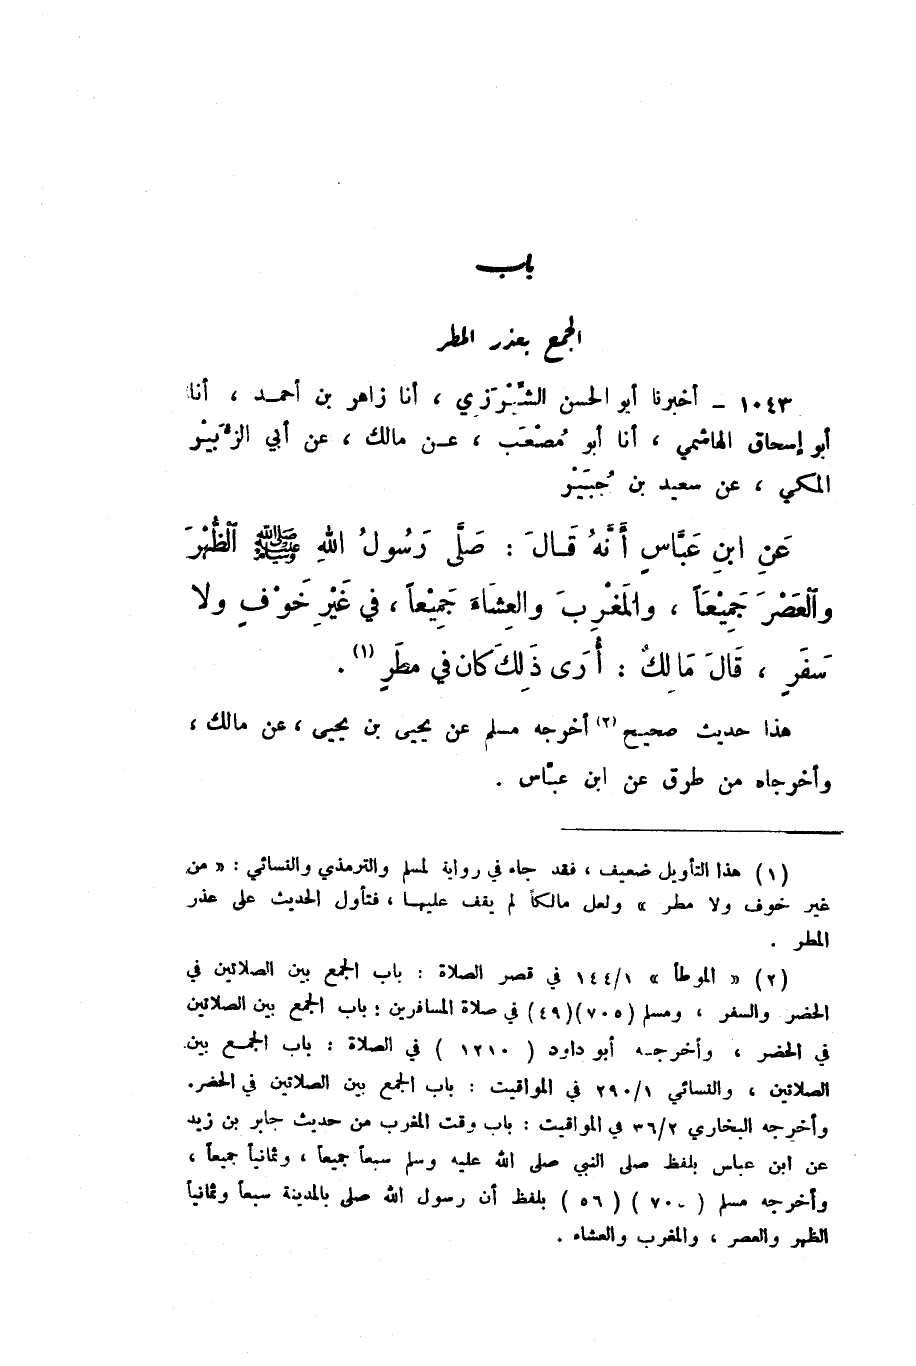 باب
الجمع بعذر المطر
١٠٤٣ – أخبرنا أبو الحسن الشِّيْرَزِي ، أنا زاهر بن أحمد ، أنا
أبو إسحاق الهاشمي ، أنا أبو مُصْعَب ، عن مالك ، عن أبي الزُّبَيْر
المكي ، عن سعيد بن جُبَيْر
عَنِ ابنِ عَبَّاسٍ أَنَّهُ قَالَ : صَلَّى رَسُولُ اللهِ ﷺ الظُّهْرَ
والعَصْرَ جَمِيْعَاً ، والمَغْرِبَ والعِشَاءَ جَمِيْعاً ، في غَيْرِ خَوْفٍ ولا
سَفَرٍ ، قَالَ مَالِكٌ : أُرَى ذَلِكَ كان في مطَرٍ (١) .
هذا حديث صحيح (٢) أخرجه مسلم عن يحيى بن يحيى ، عن مالك ،
وأخرجاه من طرق عن ابن عبَّاس .
(١) هذا التأويل ضعيف ، فقد جاء في رواية لمسلم والترمذي والنسائي : « من
غير خوف ولا مطر » ولعل مالكاً لم يقف عليها ، فتأول الحديث على عذر
المطر .
(٢) « الموطأ » ١٤٤/١ في قصر الصلاة : باب الجمع بين الصلاتين في
الحضر والسفر ، ومسلم (٧٠٥)(٤٩) في صلاة المسافرين : باب الجمع بين الصلاتين
في الحضر ، وأخرجه أبو داود ( ١٢١٠ ) في الصلاة : باب الجمع بين
الصلاتين ، والنسائي ٢٩٠/١ في المواقيت : باب الجمع بين الصلاتين في الحضر.
وأخرجه البخاري ٣٦/٢ في المواقيت : باب وقت المغرب من حديث جابر بن زيد
عن ابن عباس بلفظ صلى النبي صلى الله عليه وسلم سبعاً جميعاً ، وثمانياً جميعاً ،
وأخرجه مسلم ( ٧٠ ) ( ٥٦ ) بلفظ أن رسول الله صلى بالمدينة سبعاً وثمانياً
الظهر والعصر ، والمغرب والعشاء .